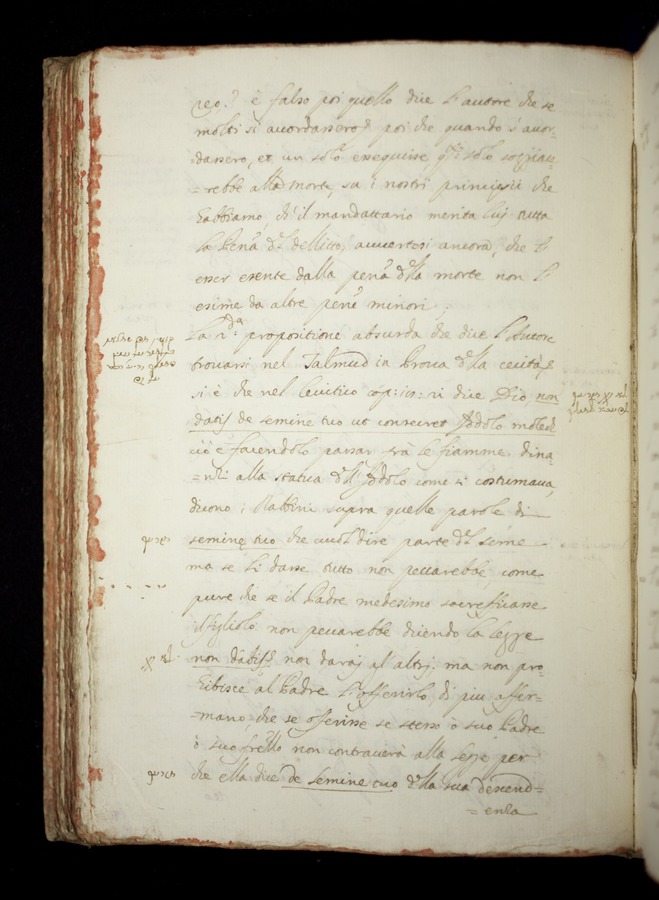 reo? è falso poi quello dice l'autore che se
molti si accordassero poi che quando s'accor-
dassero, et un solo esequisse q.ti solo soggiac-
=rebbe alla morte, su i nostri principii che
habbiamo, ch'il mandattario merita lui tutta
la pena d.l dellitto, avvertasi ancora, che l'
esser esente dalla pena d.lla morte non l'
esime da altre pene minori.
La n.da propositione absurda che dice l'Autore
trovarsi nel Talmud in prova d.lla cecità
si è che nel Levitico cap: vi dice Dio, non
datis de semine tuo ut consecret Idolo moloch
ciò è facendolo passar trà le fiamme dina
=nzi alla statua d.ll' Idolo come si costumava,
dicono i Rabbini supra quelle parole di
semine tuo che vuol dire parte d.l seme
ma se li dasse tutto non peccarebbe, come
pure che se il Padre medesimo sacreficasse
il figliolo non peccarebbe dicendo la legge
non dabis, non darai ad altri, ma non pro
hibisce al Padre l'offerirlo, di piu affir-
=mano, che se offerisse se stesso ò suo Padre
ò suo frello non contraverà alla legge per
che ella dice de semine tuo d.lla sua descend=
=enla